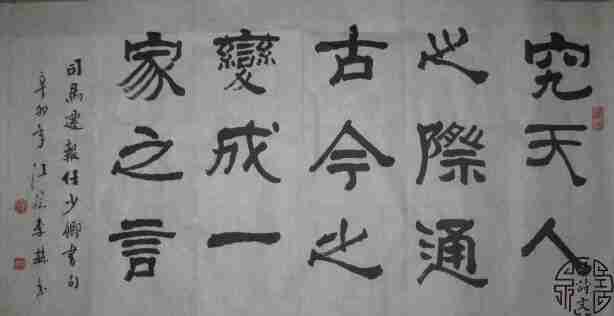 究天人
之際通
古今之
變成一
家之言
司馬遷報任少卿書句
辛卯年